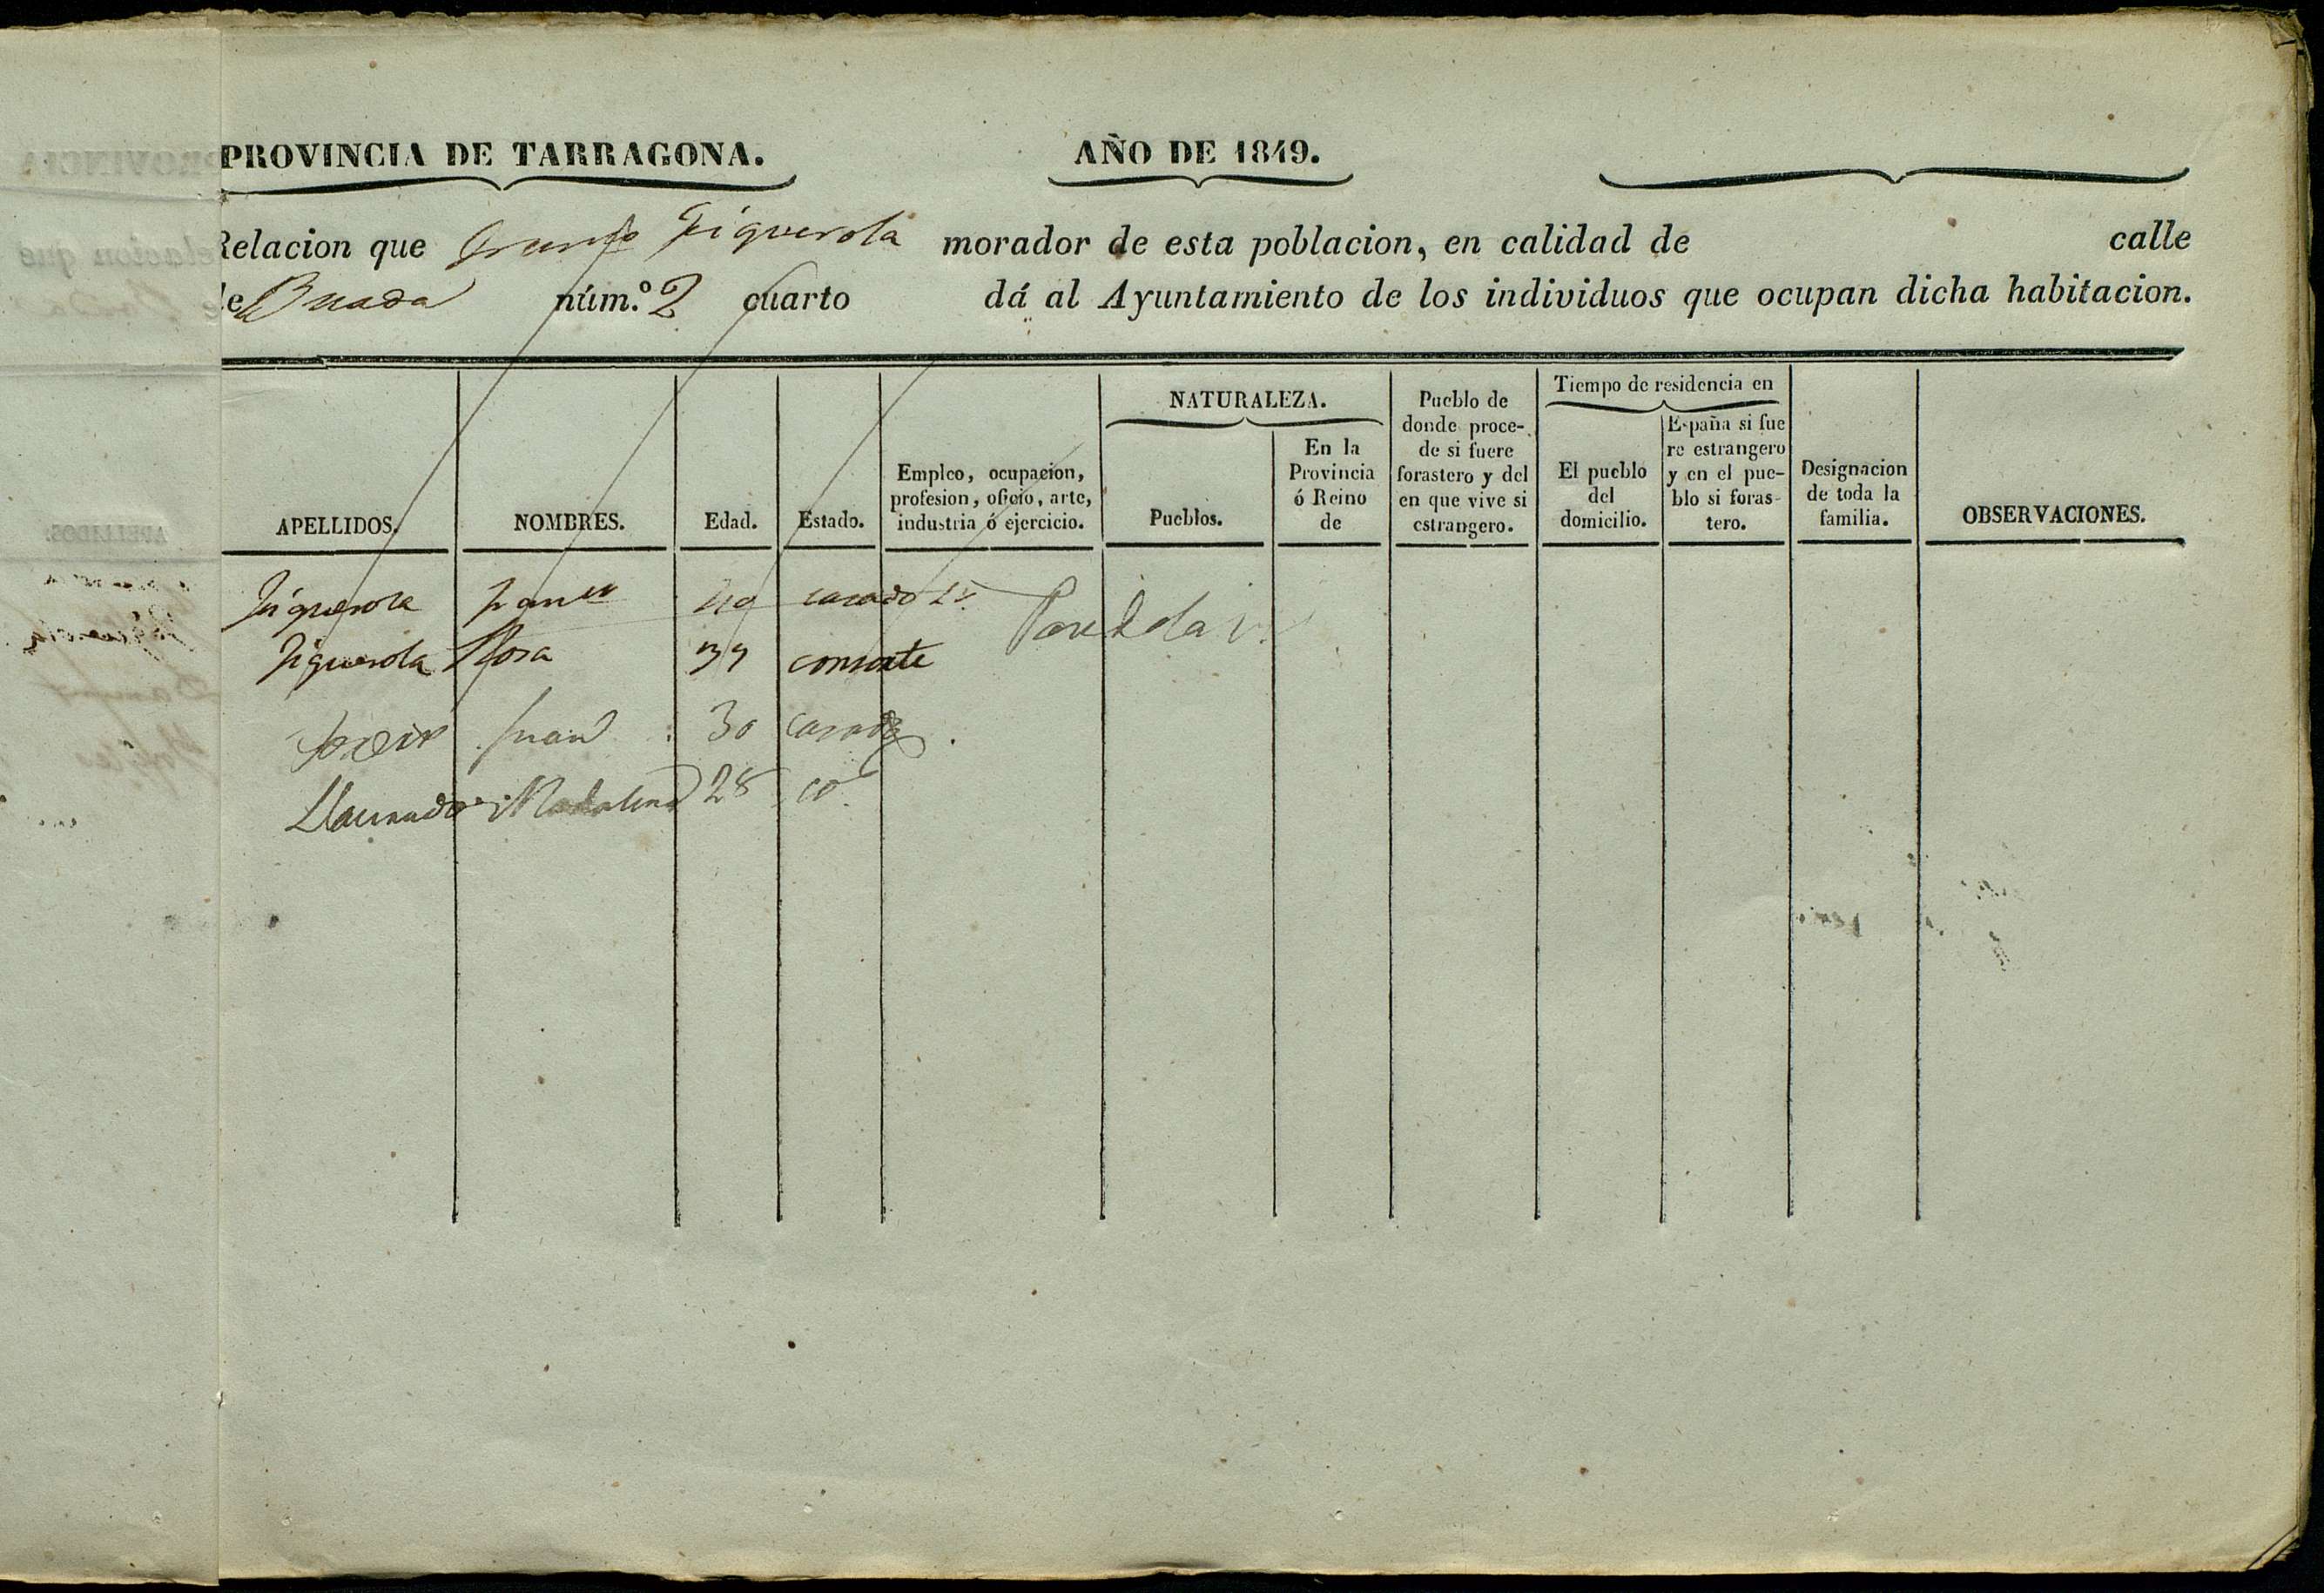 PROVINCIA DE TARRAGONA. AÑO DE 1849.
Relacion que Figuerola morador de esta poblacion, en calidad de calle
de núm.º 2 cuarto dá al Ayuntamiento de los individuos que ocupan dicha habitacion.
APELLIDOS.
NOMBRES.
Edad.
Estado.
Empleo, ocupacion,
profesion, oficio, arte,
industria ó ejercicio.
NATURALEZA.
Pueblos.
En la
Provincia
ó Reino
de
Pueblo de
donde proce-
de si fuere
forastero y del
en que vive si
estrangero.
Tiempo de residencia en
El pueblo
del
domicilio.
España si fue
re estrangero
y en el pue-
blo si foras-
tero.
Designacion
de toda la
familia.
OBSERVACIONES.
Figuerola casado
Figuerola Rosa 39 consorte
Juan 30 casado
Madalena 28 co